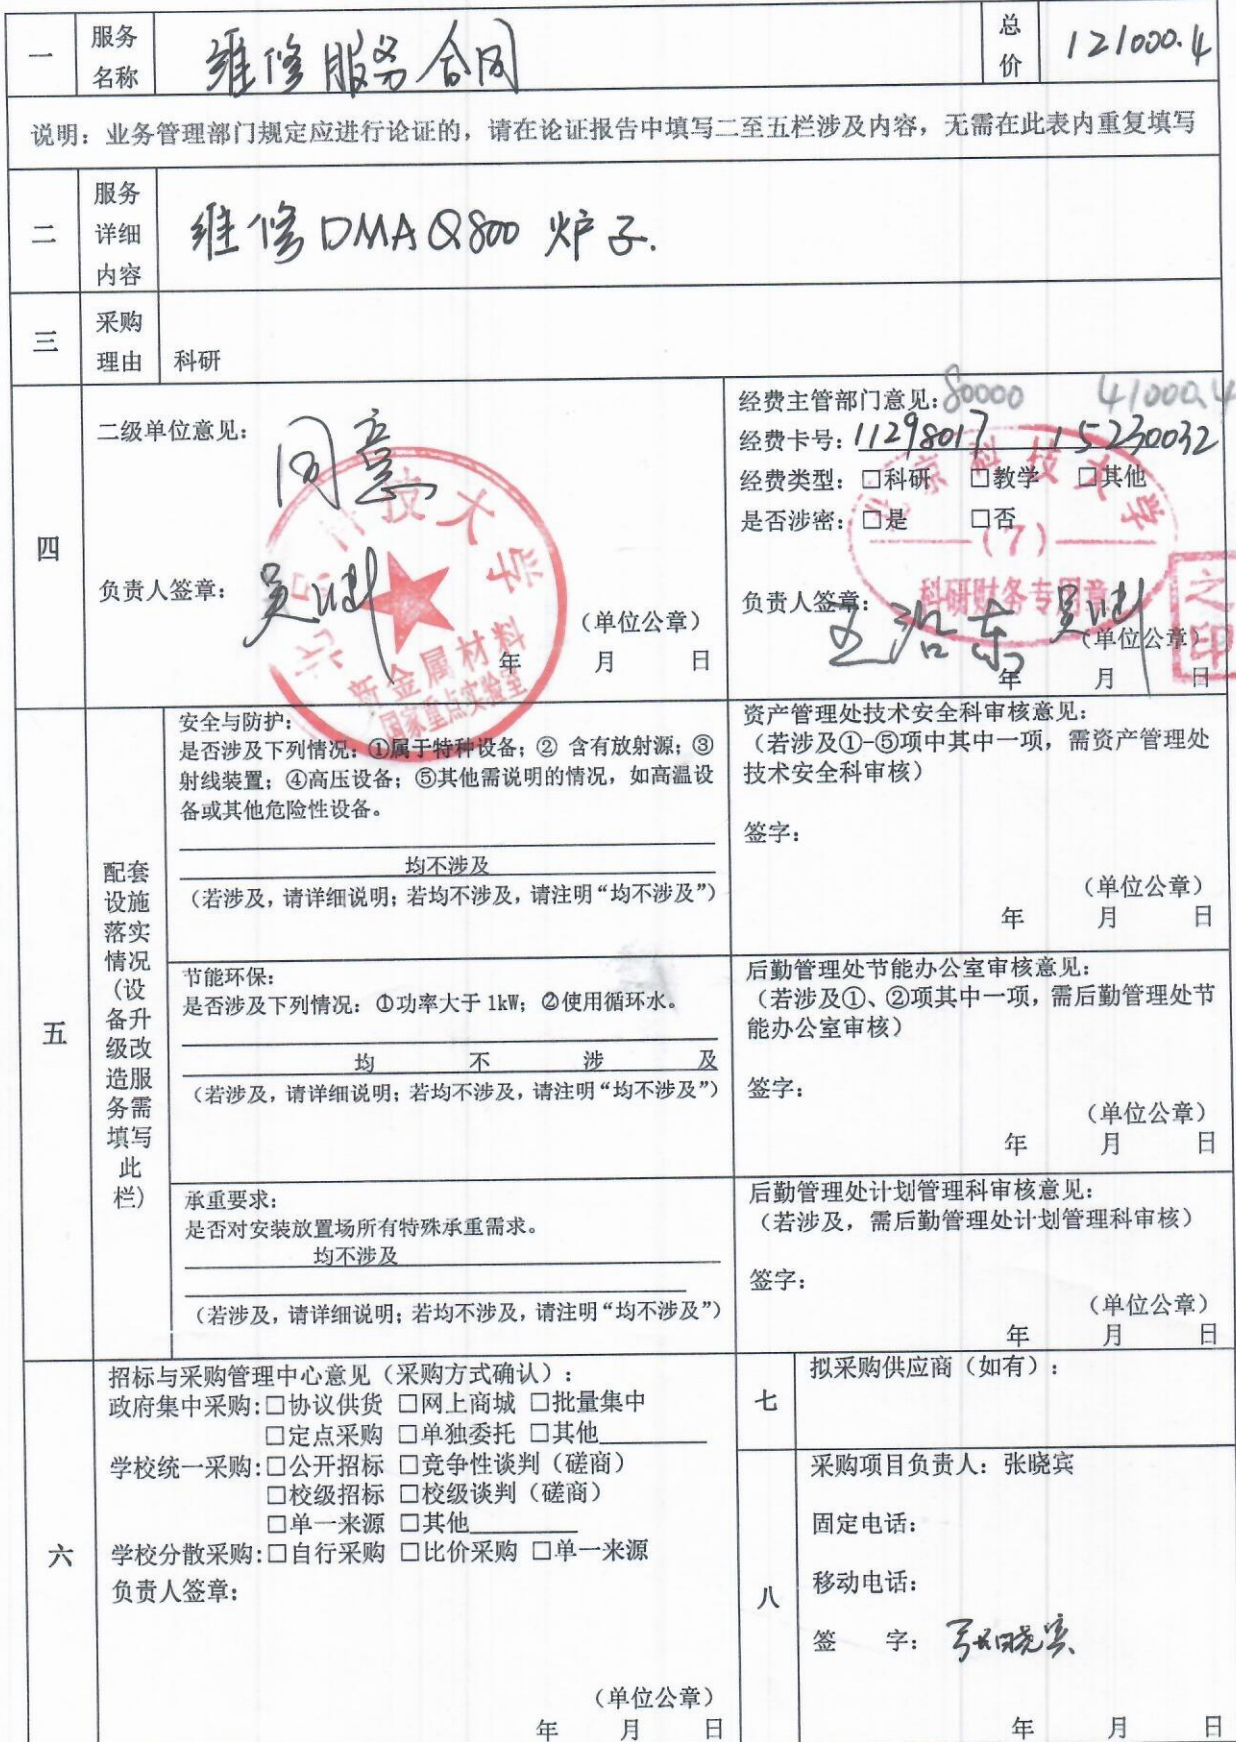 一 服务名称 维修服务合同 总价 121000.4
说明：业务管理部门规定应进行论证的，请在论证报告中填写二至五栏涉及内容，无需在此表内重复填写
二 服务详细内容 维修DMAQ800 炉子.
三 采购理由 科研
四
二级单位意见： 同意
负责人签章：
（单位公章）
年 月 日
科技大学
新金属材料
国家重点实验室
经费主管部门意见： 80000 41000.4
经费卡号：11298017 15230032
经费类型：□科研 □教学 □其他
是否涉密：□是 □否
负责人签章：
（单位公章）
年 月 日
北京科技大学
(7)
科研财务专用章
之印
五
配套设施落实情况（设备升级改造服务需填写此栏）
安全与防护：
是否涉及下列情况：①属于特种设备；② 含有放射源；③
射线装置；④高压设备；⑤其他需说明的情况，如高温设
备或其他危险性设备。
均不涉及
（若涉及，请详细说明；若均不涉及，请注明“均不涉及”）
资产管理处技术安全科审核意见：
（若涉及①-⑤项中其中一项，需资产管理处
技术安全科审核）
签字：
（单位公章）
年 月 日
节能环保：
是否涉及下列情况：①功率大于 1kW；②使用循环水。
均 不 涉 及
（若涉及，请详细说明；若均不涉及，请注明“均不涉及”）
后勤管理处节能办公室审核意见：
（若涉及①、②项其中一项，需后勤管理处节
能办公室审核）
签字：
（单位公章）
年 月 日
承重要求：
是否对安装放置场所有特殊承重需求。
均不涉及
（若涉及，请详细说明；若均不涉及，请注明“均不涉及”）
后勤管理处计划管理科审核意见：
（若涉及，需后勤管理处计划管理科审核）
签字：
（单位公章）
年 月 日
六
招标与采购管理中心意见（采购方式确认）：
政府集中采购：□协议供货 □网上商城 □批量集中
□定点采购 □单独委托 □其他
学校统一采购：□公开招标 □竞争性谈判（磋商）
□校级招标 □校级谈判（磋商）
□单一来源 □其他
学校分散采购：□自行采购 □比价采购 □单一来源
负责人签章：
（单位公章）
年 月 日
七
拟采购供应商（如有）：
八
采购项目负责人：张晓宾
固定电话：
移动电话：
签 字： 张晓宾
年 月 日